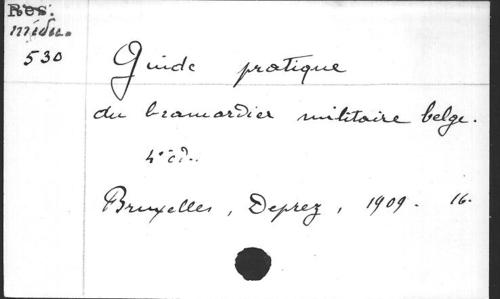 Res.
médic.
530
Guide pratique
du brancardier militaire belge.
4e éd.
Bruxelles, Deprez, 1909. 16.